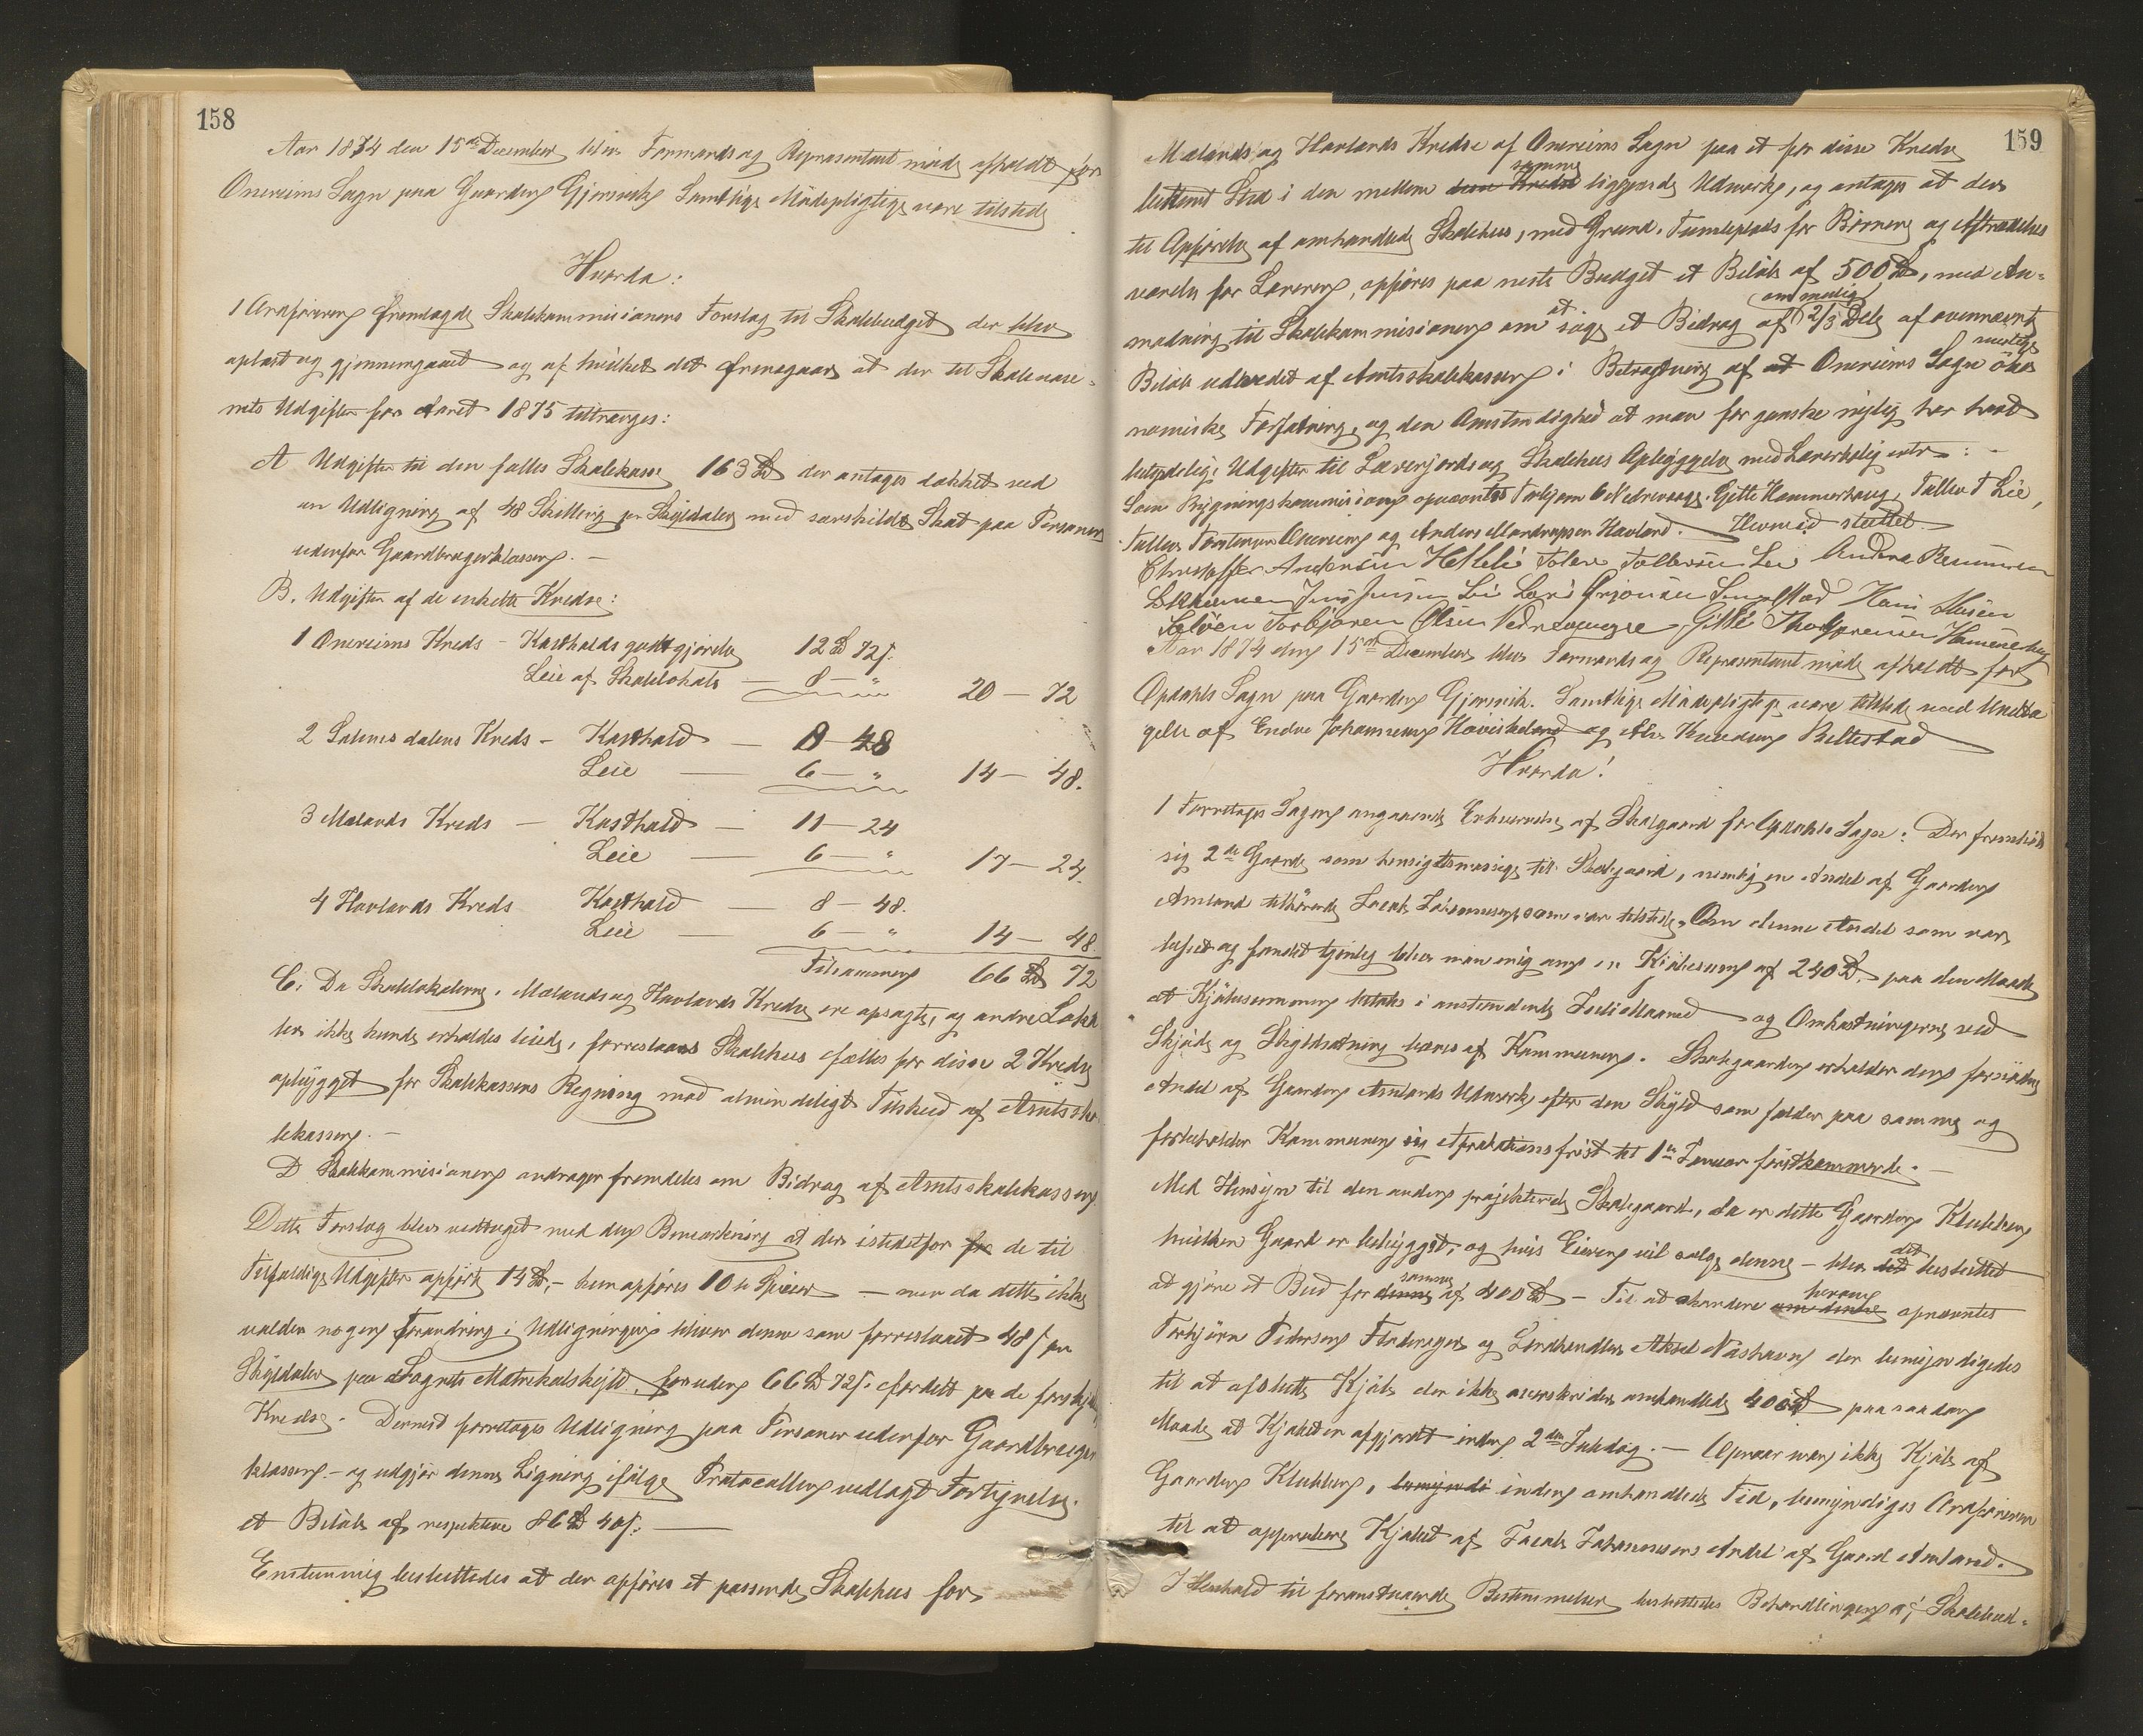 158
Aar 1874 den 15de December blev Formands og Repræsentant møde afholdt for
Onereims Sogn paa Gaarden Gjersvik Samtlige Mødepligtige vare tilstede
Hvorda:
1 Ordføreren fremlagde Skolekommissionens Forslag til Skolebudget der blev
oplæst og gjennemgaaet og af hvilket det fremgaar at der til Skolevæse-
nets Udgifter for Aaret 1875 tiltrænges:
A Udgifter til den fælles Skolekasse 163 Spd der antages dækket ved
en Udligning af 48 Skilling pr Skyldaler med særskildt Skat paa Personer
udenfor Gaardbrugerklassen. -
B. Udgifter af de enkelte Kredse:
1 Onereims Kreds - Kostholds godtgjørelse 12 Spd 72 s.
Leie af Skolelokale - 8 - " 20 - 72
2 Salomsdalens Kreds - Kosthold - 8 - 48
Leie - 6 - " 14 - 48.
3 Mælands Kreds - Kosthold - 11 - 24
Leie - 6 - " 17 - 24.
4 Hovlands Kreds Kosthold - 8 - 48.
Leie - 6 - " 14 - 48.
Tilsammen 66 Spd 72
C. Da Skolelokalerne i Mælands og Hovlands Kredse ere opsagte, og andre Loka
ler ikke kunde erholdes leiede, foreslaaes Skolehus fælles for disse 2 Kredse
opbygget for Skolekassens Regning med almindeligt Tilskud af Amtssko-
lekassen. -
D Skolekommissionen andrager fremdeles om Bidrag af Amtsskolekassen
Dette Forslag blev vedtaget med den Bemærkning at der istedetfor for de til
Tilfældige Udgifter opført 14 Spd. - kun opføres 10 ti Specier - men da dette ikke
volder nogen Forandring i Udligningen bliver denne som foreslaaet 48 s pr
Skyldaler paa Sognets Matrikulskyld, foruden 66 Spd 72 s. fordelt paa de forskjel
Kredse. Dernest foretoges Udligning paa Personer udenfor Gaardbruger
klassen - og udgjør denne Ligning ifølge Protocollen vedlagt Fortegnelse
et Beløb af respektive 86 Spd 40 s.
Enstemmig besluttedes at der opføres et passende Skolehus for
159
Mælands og Hovlands Kredse af Onereims Sogn paa et for disse Kredse
samme
bestemt Sted i den mellem disse Kredse liggende Udmark, og antages at der
til Opførelse af omhandlede Skolehus, med Grund, Tumleplads for Børnene og Aftrædelses
værelse for Læreren, opføres paa neste Budget et Beløb af 500 Spd, med An-
modning til Skolekommissionen om at søge et Bidrag af omtrentlig 2/3 Dele af ovennævnte
Beløb udredet af Amtsskolekassen i Betragtning af at Onereims Sogn øko-
nomiske Forfatning, og den Omstendighed at man for ganske nylig har havt
betydelige Udgifter til Lærerjord og Skolehus Opbyggelse med Lærerbolig
Som Bygningskommission opnævntes Torbjørn O Nedrevaage, Gitle Hammerhaug, Tollev T Lie,
Tollev Onereim og Anders Hovland. Hermed sluttet.
Christoffer Andersen Helleli Tollev Tollevsen Lie Andrea Rasmussen
Jens Jensen Lie Lars Hans
Torbjøren Olsen Nedrevaage Gitle Hammerhaug
Aar 1874 den 15de December blev Formands og Repræsentant møde afholdt for
Opdahls Sogn paa Gaarden Gjersvik. Samtlige Mødepligtige vare tilstede med Undta
gelse af Endre Johannesen Høviskeland og Ole Knudsen Beltestad
Hvorda!
1 Foretoges Sagen angaaende Erhvervelse af Skolegaard for Opdahls Sogn: Der fremstod
sig 2de Gaarde som hensigtsmæssige til Skolegaard, nemlig en Andel af Gaarden
Amland tilhørende Jacob Johannesen, som var tilstede. Om denne Andel som var
beseet og fundet tjenlig blev man enig om en Kjøbesum af 240 Spd. paa den Maade
at Kjøbesummen betales i anstundende Juli Maaned og Omkostningerne ved
Skjøde og Skyldsætning bæres af Kommunen. Skolegaarden erholder den fornødne
Andel af Gaarden Amlands Udmark efter den Skyld som falder paa samme og
forbeholder Kommunen sig Approbationsfrist til 1ste Januar førstkommende. -
Med Hensyn til den anden projekterede Skolegaard, da er dette Gaarden Klubben
hvilken Gaard er bebygget, og hvis Eieren vil sælge denne - blev det besluttet
at gjøre et Bud for denne samme af 400 Spd - Til at akordere om denne herom opnævntes
Torbjørn Pedersen Flaterager og Landhandler Aksel Næshavn der bemyndigedes
til at afslutte Kjøb der ikke overskrider omhandlede 400 Spd paa saadan
Maade at Kjøbet er afgjordt inden 2den Juledag. - Opnaar man ikke Kjøb af
Gaarden Klubben, bemyndi inden omhandlede Tid, bemyndiges Ordføreren
til at approbere Kjøbet af Jacob Johannesens Andel af Gaard Amland.
I Henhold til foranstaaende Bestemmelser besluttedes Behandlingen af Skolebud-